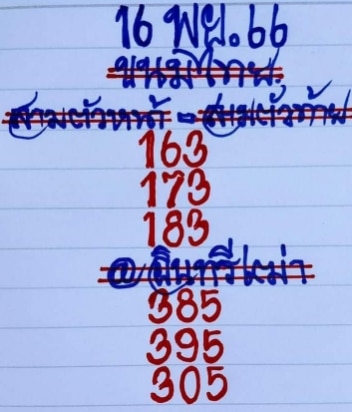 16 พย.66
ขนมไทย
สามตัวหน้า - สามตัวท้าย
163
173
183
@อินทรี
385
395
305